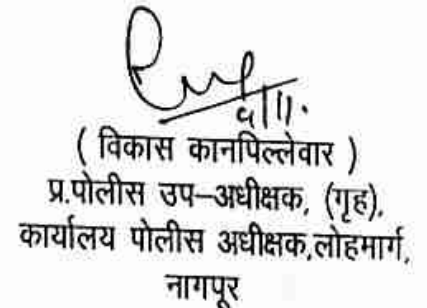 ( विकास कानपिल्लेवार )
प्र.पोलीस उप–अधीक्षक, (गृह),
कार्यालय पोलीस अधीक्षक,लोहमार्ग,
नागपूर